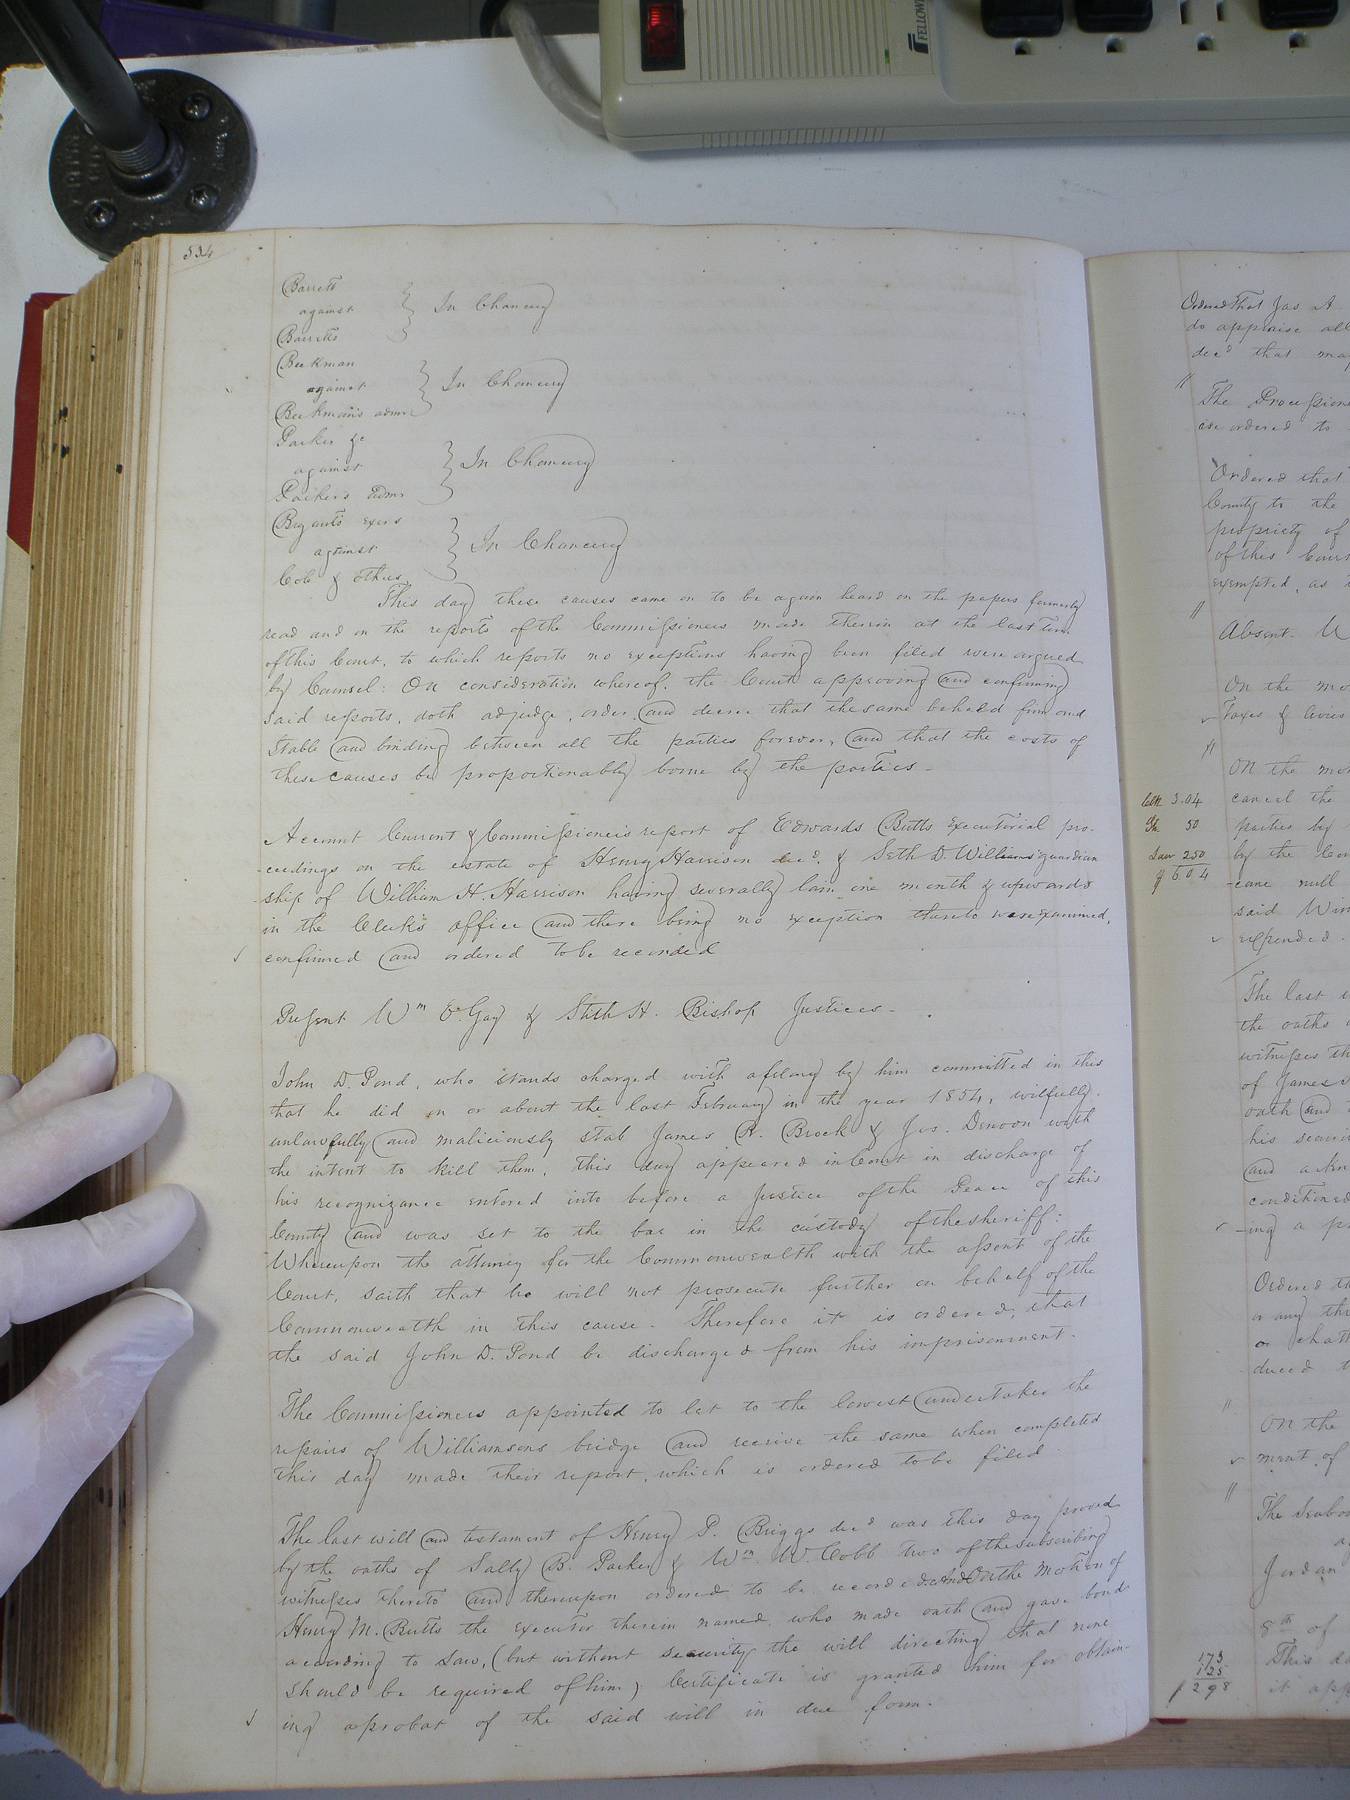 FELLOWES
534
Barrett
against } In Chancery
Barretts
Beekman
against } In Chancery
Beekman's admr
Parker &c
against } In Chancery
Parkers admr
Bryants exers
against } In Chancery
Cob & others
This day these causes came on to be again heard on the papers formerly
read and on the reports of the Commissioners made therein at the last term
of this Court, to which reports no exceptions having been filed were argued
by Counsel: On consideration whereof, the Court approving and confirming
said reports, doth adjudge, order, and decree that the same be held firm and
stable and binding between all the parties forever, and that the costs of
these causes be proportionably borne by the parties -
Account Current & Commissioners report of Edwards Butts Executorial pro-
ceedings on the estate of Henry Harrison decd. & Seth D. Williams guardian
ship of William H. Harrison having severally lain one month & upwards
in the Clerks office and there being no exception thereto were examined,
confirmed and ordered to be recorded
Present Wm O. Gay & Stith H. Bishop Justices -
John D. Pond, who stands charged with a felony by him committed in this
that he did on or about the last February in the year 1854, wilfully,
unlawfully and maliciously stab James R. Brock & Jos. Denoon with
the intent to kill them, this day appeared in Court in discharge of
his recognizance entered into before a Justice of the Peace of this
County and was set to the bar in the custody of the sheriff:
Whereupon the attorney for the Commonwealth with the assent of the
Court, saith that he will not prosecute further on behalf of the
Commonwealth in this cause. Therefore it is ordered, that
the said John D. Pond be discharged from his imprisonment.
The Commissioners appointed to let to the lowest undertaker the
repairs of Williamsons bridge and receive the same when completed
this day made their report, which is ordered to be filed
The last will and testament of Henry P. Briggs decd was this day proved
by the oaths of Sally B. Parker & Wm. W. Cobb two of the subscribing
witnesses thereto and thereupon ordered to be recorded. And On the motion of
Henry M. Butts the executor therein named who made oath and gave bond
according to law, (but without security the will directing that none
should be required of him) Certificate is granted him for obtain-
ing a probat of the said will in due form.
Ordered that Jas A
do appraise all
decd that may
The Procession
are ordered to
Ordered that
County to the
propriety of
of this Court
exempted, as
Absent. W
On the mo
Taxes & levies
On the mo
cancel the
parties by
by the
null
said Win
expended.
Clk 3.04
Sh. 50
Law 2.50
6.04
The last
the oaths
witnesses th
of James
oath and
his securi
and ackn
conditioned
ing a p
Ordered th
or any thr
or chatt
duced t
On the
ment of
The Seabo
Jordan
8th of
This da
it app
173
125
298